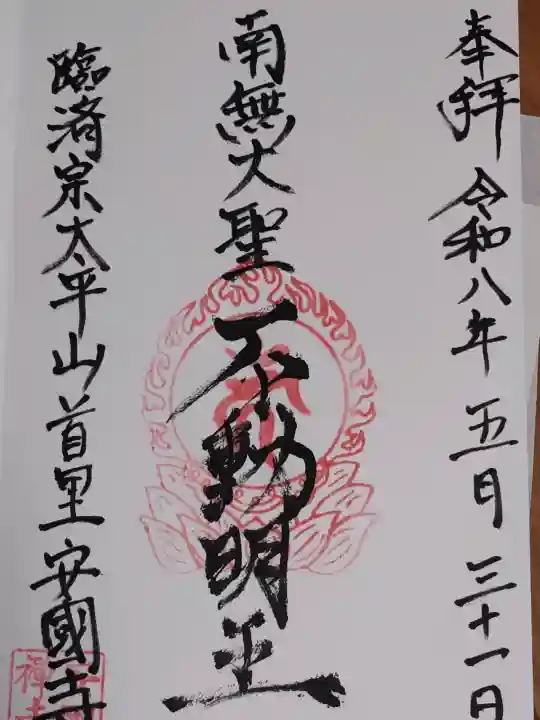 奉拝 令和八年 五月 三十一日
南無大聖不動明王
臨済宗太平山首里安國寺